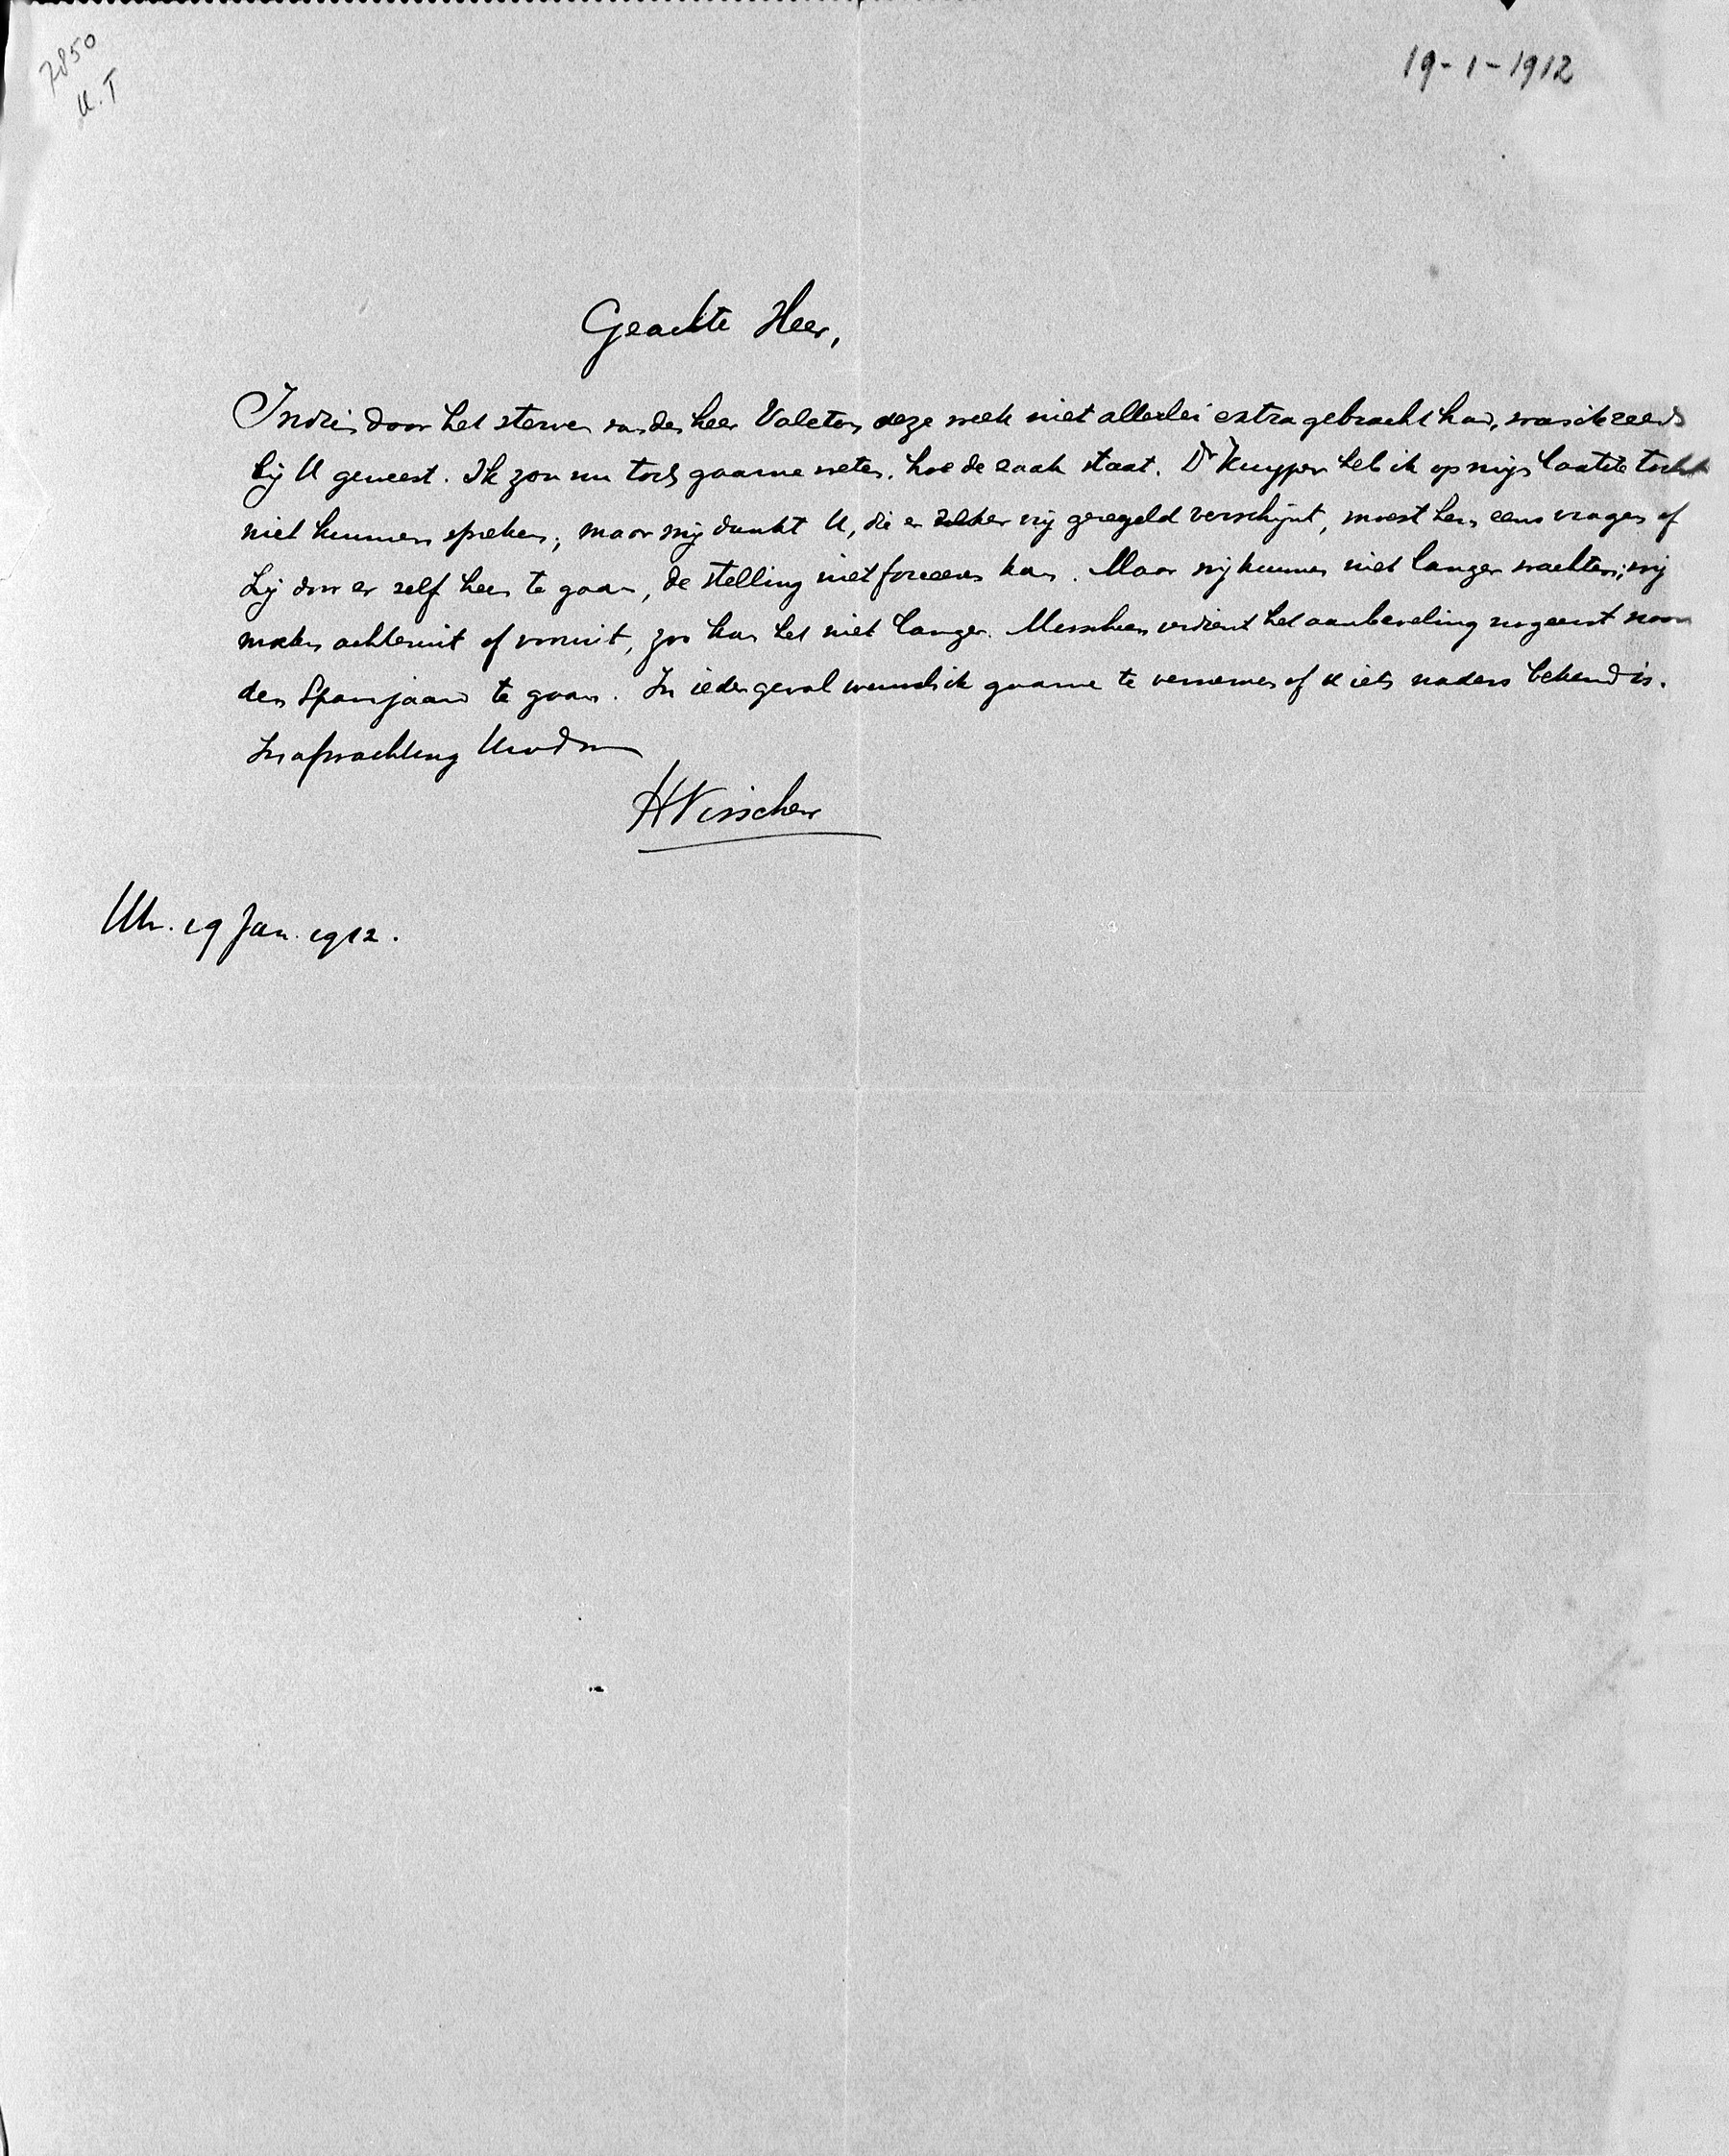 7850
U.T
19-1-1912
Geachte Heer,
Indien door het sterven van den heer Valeton deze week niet allerlei extra gebracht had, was ik reeds
bij U geweest. Ik zou nu toch gaarne weten, hoe de zaak staat. Dr Kuyper heb ik op mijn laatste tocht
niet kunnen spreken; maar mij dunkt U, die er zeker vrij geregeld verschijnt, moest hem eens vragen of
hij door er zelf heen te gaan, de stelling niet forceeren kan. Maar wij kunnen niet langer wachten; wij
moeten achteruit of vooruit, zoo kan het niet langer. Misschien verdient het aanbeveling nog eerst naar
den Spanjaard te gaan. In ieder geval wensch ik gaarne te vernemen of U iets naders bekend is.
In afwachting
HVisscher
Utr. 19 Jan. 1912.